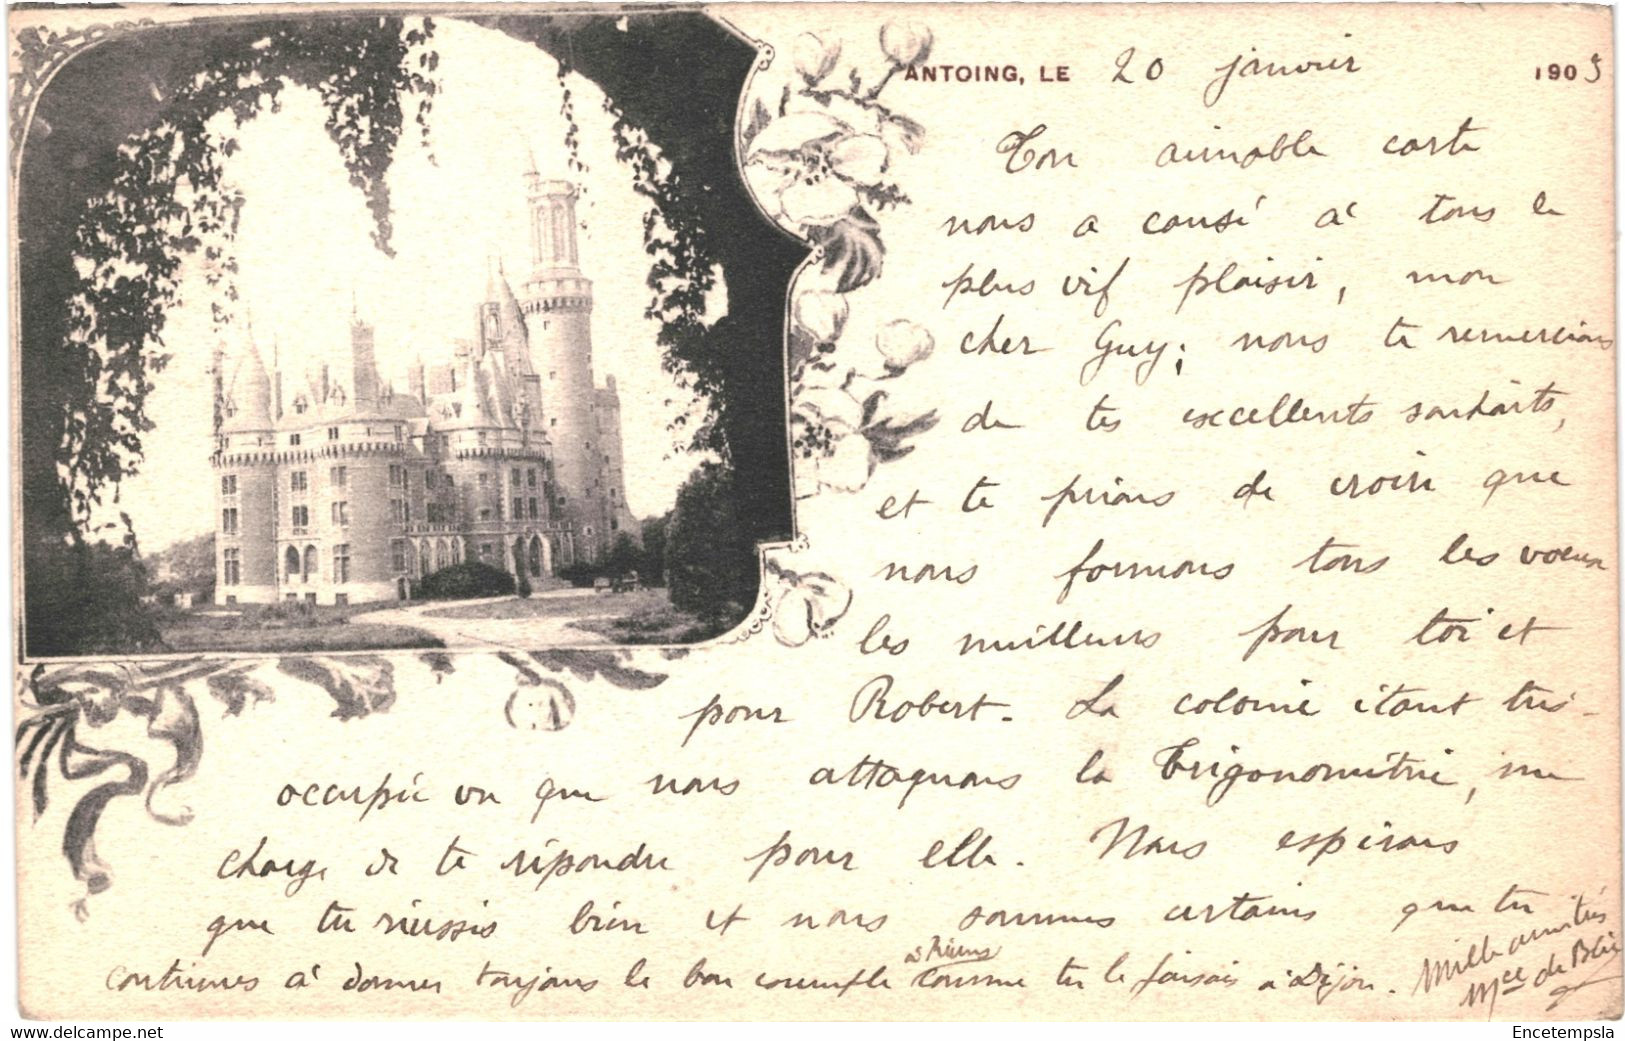 ANTOING, LE 20 janvier 1903
Ton aimable carte
nous a causé à tous le
plus vif plaisir, mon
cher Guy; nous te remercions
de tes excellents souhaits,
et te prions de croire que
nous formons tous les voeux
les meilleurs pour toi et
pour Robert. La colonie étant très-
occupée vu que nous attaquons la Trigonométrie, me
charge de te répondre pour elle. Nous espérons
que tu réussis bien et nous sommes certains que tu
continues à donner toujours le bon exemple à Reims comme tu le faisais à Dijon.
Mille amitiés
Mce de
Encetempsla